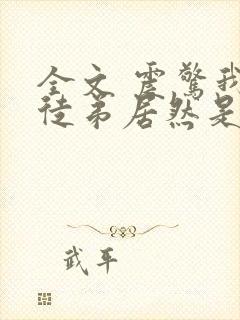 全文 震驚我
徒弟居然是
武平